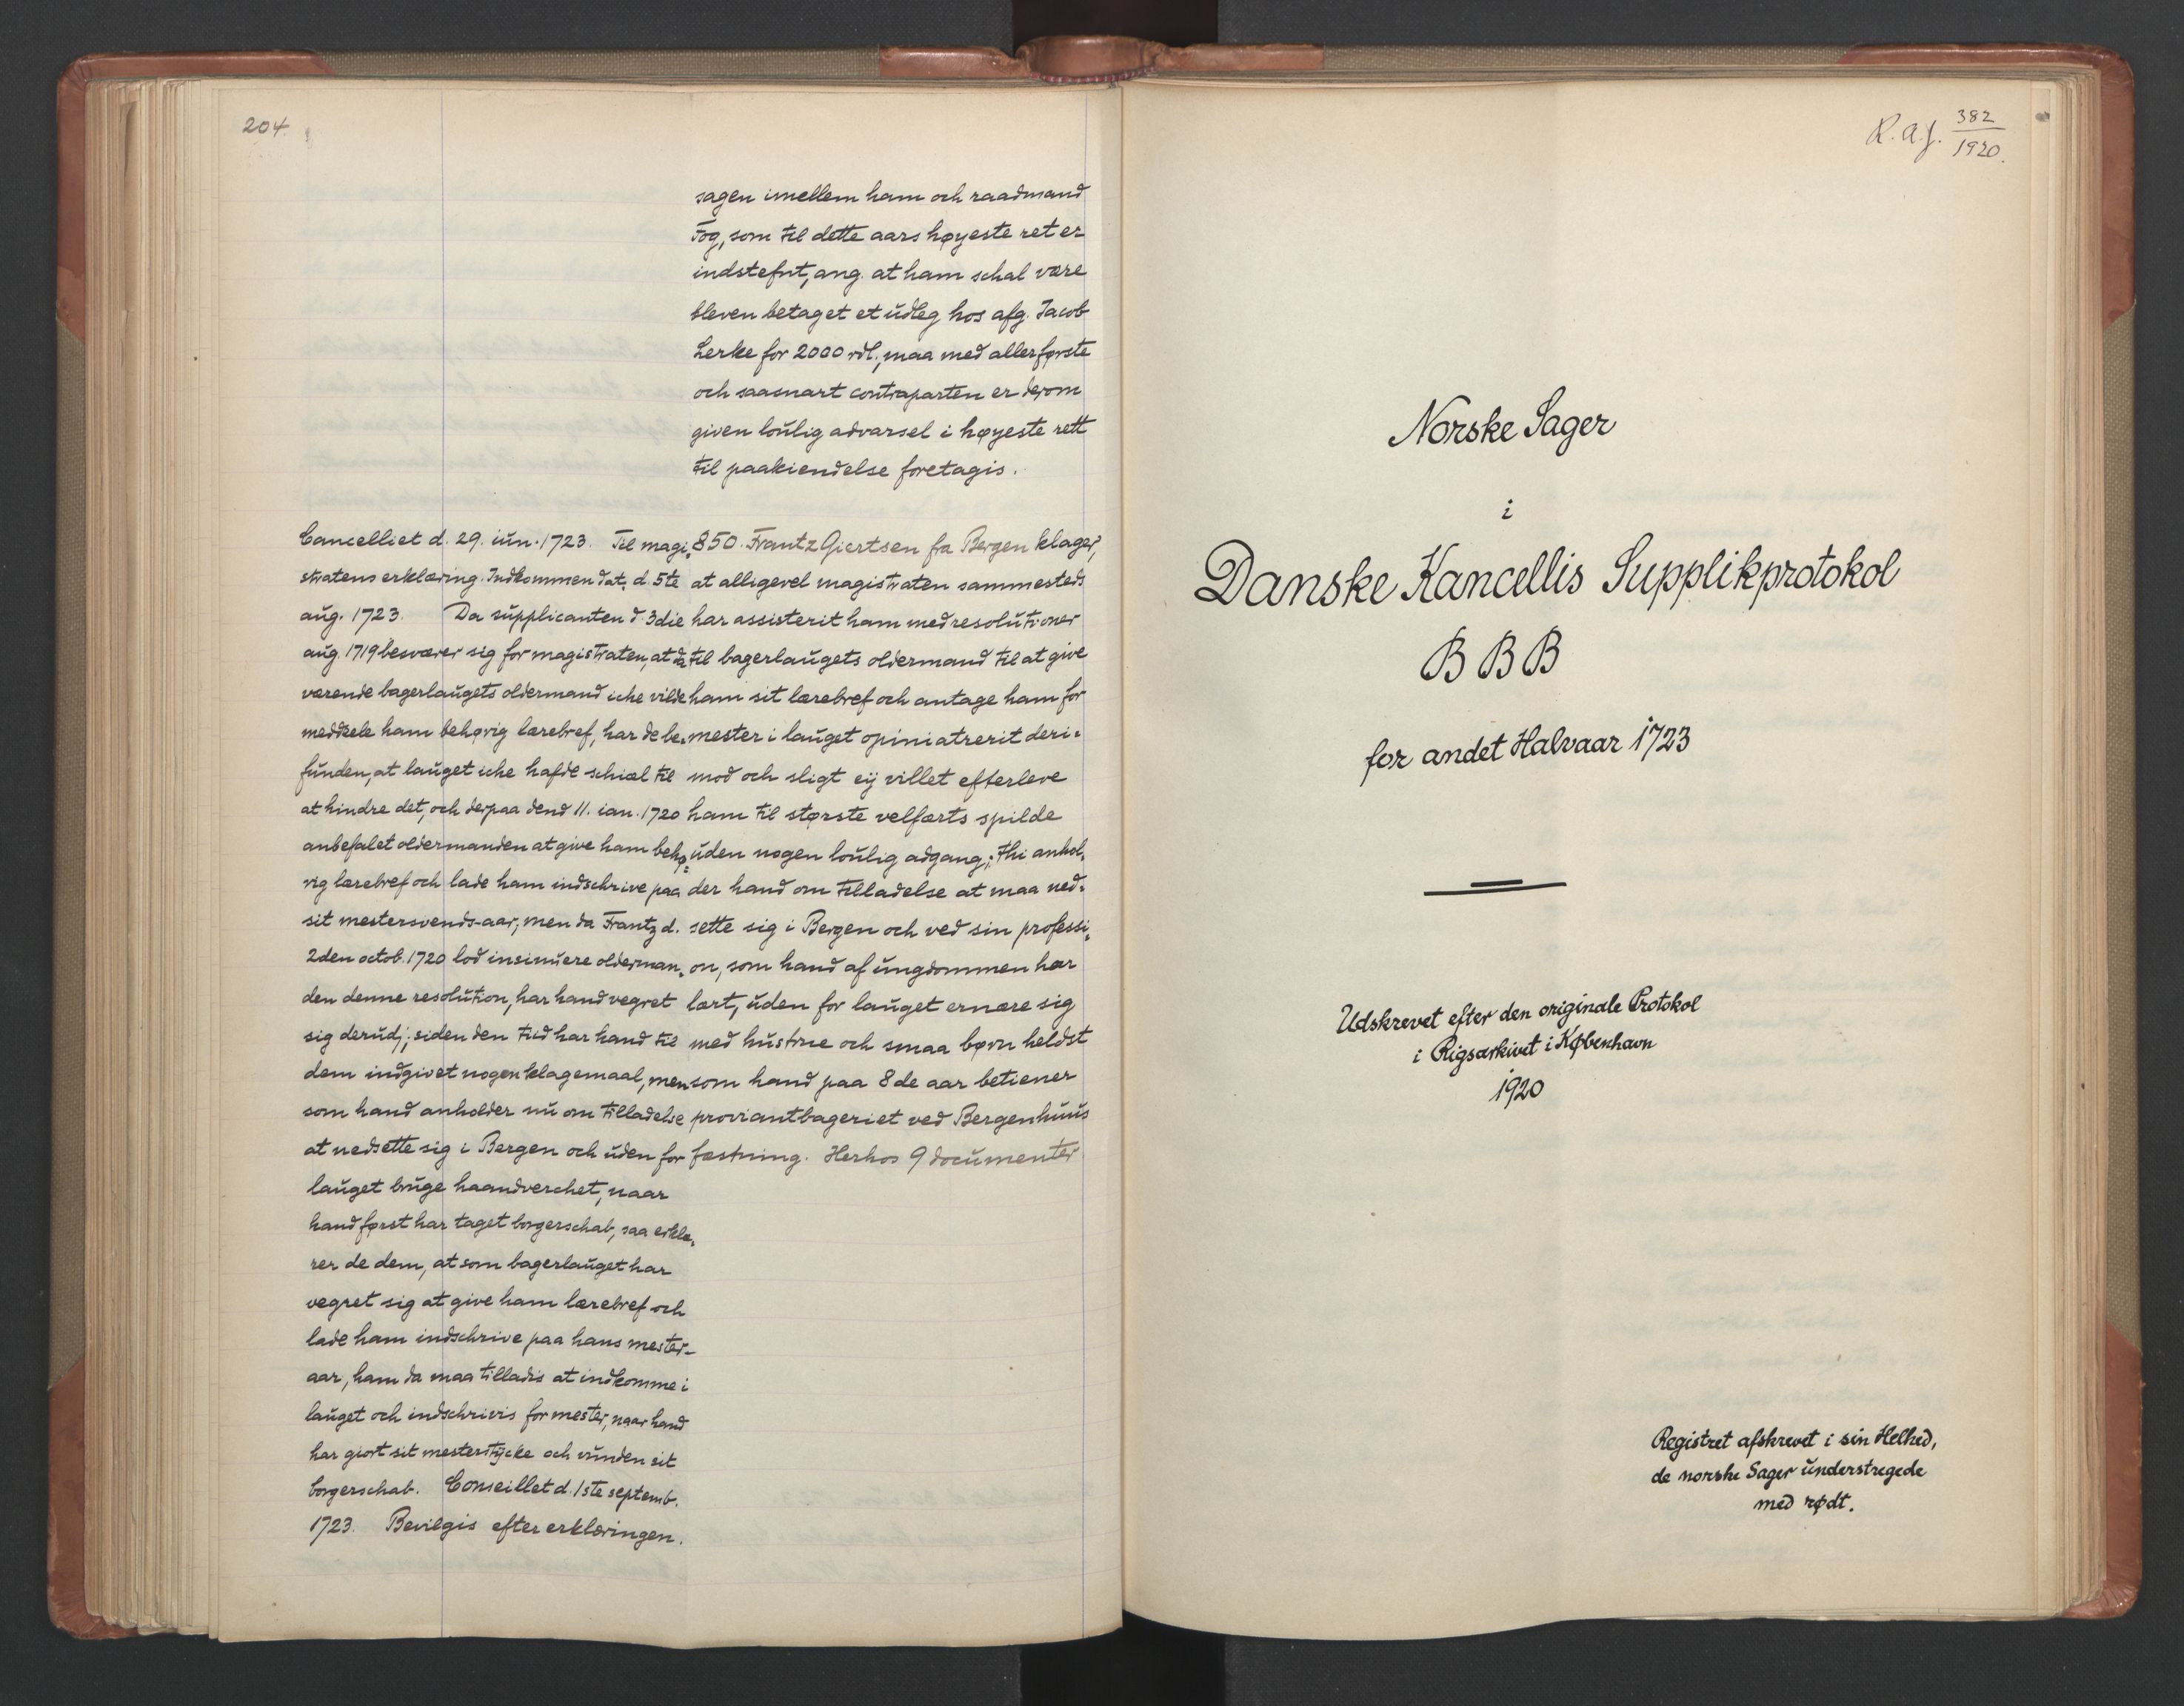 204.
sagen imellem ham och raadmand
Fog, som til dette aars høyeste ret er
indstefnt, ang. at ham schal være
bleven betaget et udleg hos afg. Jacob
Lerke for 2000 rdl., maa med allerførste
och saasnart contraparten er derom
given loulig advarsel i høyeste rett
til paakiendelse foretagis.
Cancelliet d. 29. iun. 1723. Til magi-
stratens erklæring. Indkommen dat. d. 5te
aug. 1723. Da supplicanten d. 3die
aug. 1719 besværer sig for magistraten, at da
værende bagerlaugets oldermand iche vilde
meddeele ham behøvig lærebref, har de be-
funden, at lauget iche hafde schiæl til
at hindre det, och derpaa dend 11. ian. 1720
anbefalet oldermanden at give ham behø-
vig lærebref och lade ham indschrive paa
sit mestersvends-aar, men da Frantz d.
2den octob. 1720 lod insinuere olderman-
den denne resolution, har hand vegret
sig derud; siden den tiid har hand til
dem indgivet nogen klagemaal, men
som hand anholder nu om tilladelse
at nedsette sig i Bergen och uden for
lauget bruge haandverchet, naar
hand først har taget borgerschab, saa erklæ-
rer de dem, at som bagerlauget har
vegret sig at give ham lærebref och
lade ham indschrive paa hans mester-
aar, ham da maa tilladis at indkomme i
lauget och indschrivis for mester, naar hand
har giort sit mesterstycke och vunden sit
borgerschab. Conseillet d. 1ste septemb.
1723. Bevilgis efter erklæringen.
850. Frantz Giertsen fra Bergen klager,
at alligevel magistraten sammesteds
har assisterit ham med resolutioner
til bagerlaugets oldermand til at give
ham sit lærebref och antage ham for
mester i lauget opiniatrerit deri-
mod och sligt eij villet efterleve
ham til største velfærts spilde
uden nogen loulig adgang; thi anhol-
der hand om tilladelse at maa ned-
sette sig i Bergen och ved sin professi-
on, som hand af ungdommen har
lært, uden for lauget ernære sig
med hustrue och smaa børn heldst
som hand paa 8de aar betiener
proviantbageriet ved Bergenhuus
fæstning. Herhos 9 documenter
R.a.j. 382/1920.
Norske Sager
i
Danske Kancellis Supplikprotokol
B B B
for andet Halvaar 1723
Udskrevet efter den originale Protokol
i Rigsarkivet i København
1920
Registret afskrevet i sin Helhed,
de norske Sager understregede
med rødt.